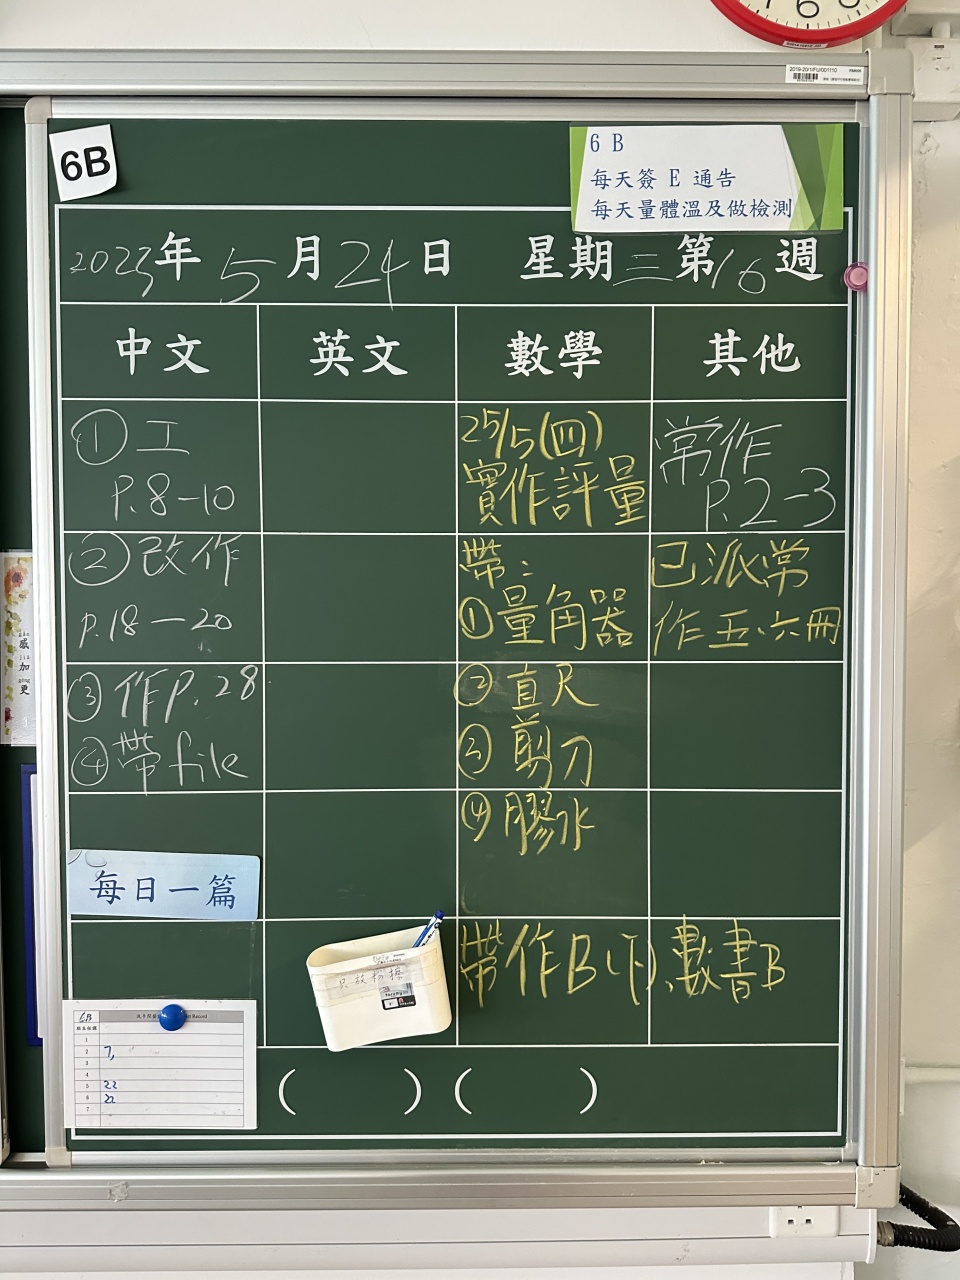 6
2019-20/1/FU/001110
6B
6 B
每天簽 E 通告
每天量體溫及做檢測
2023年 5月24日 星期三第16週
中文 英文 數學 其他
①工
P.8-10
②改作
P.18-20
③作P.28
④帶file
每日一篇
25/5(四)
實作評量
帶:
①量角器
②直尺
③剪刀
④膠水
帶作B(下),數書B
常作
P.2-3
已派常
作五、六冊
感
加
更
6B
1
2 7,
3
4
5 22
6 22
7
( ) ( )